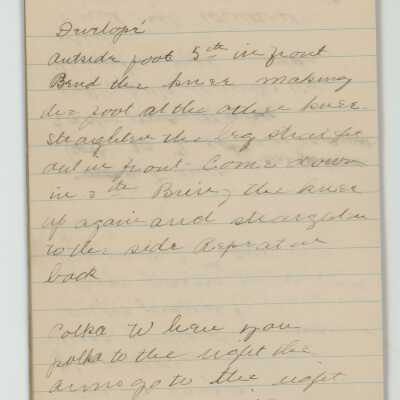 Develope'
outside foot 5th in front
Bend the knee making
the foot at the other knee
straighten the leg straight
out in front Come down
in 5th Bring the knee
up again and straighten
to the side Repeat in
back
Polka When you
polka to the right the
arms go to the right